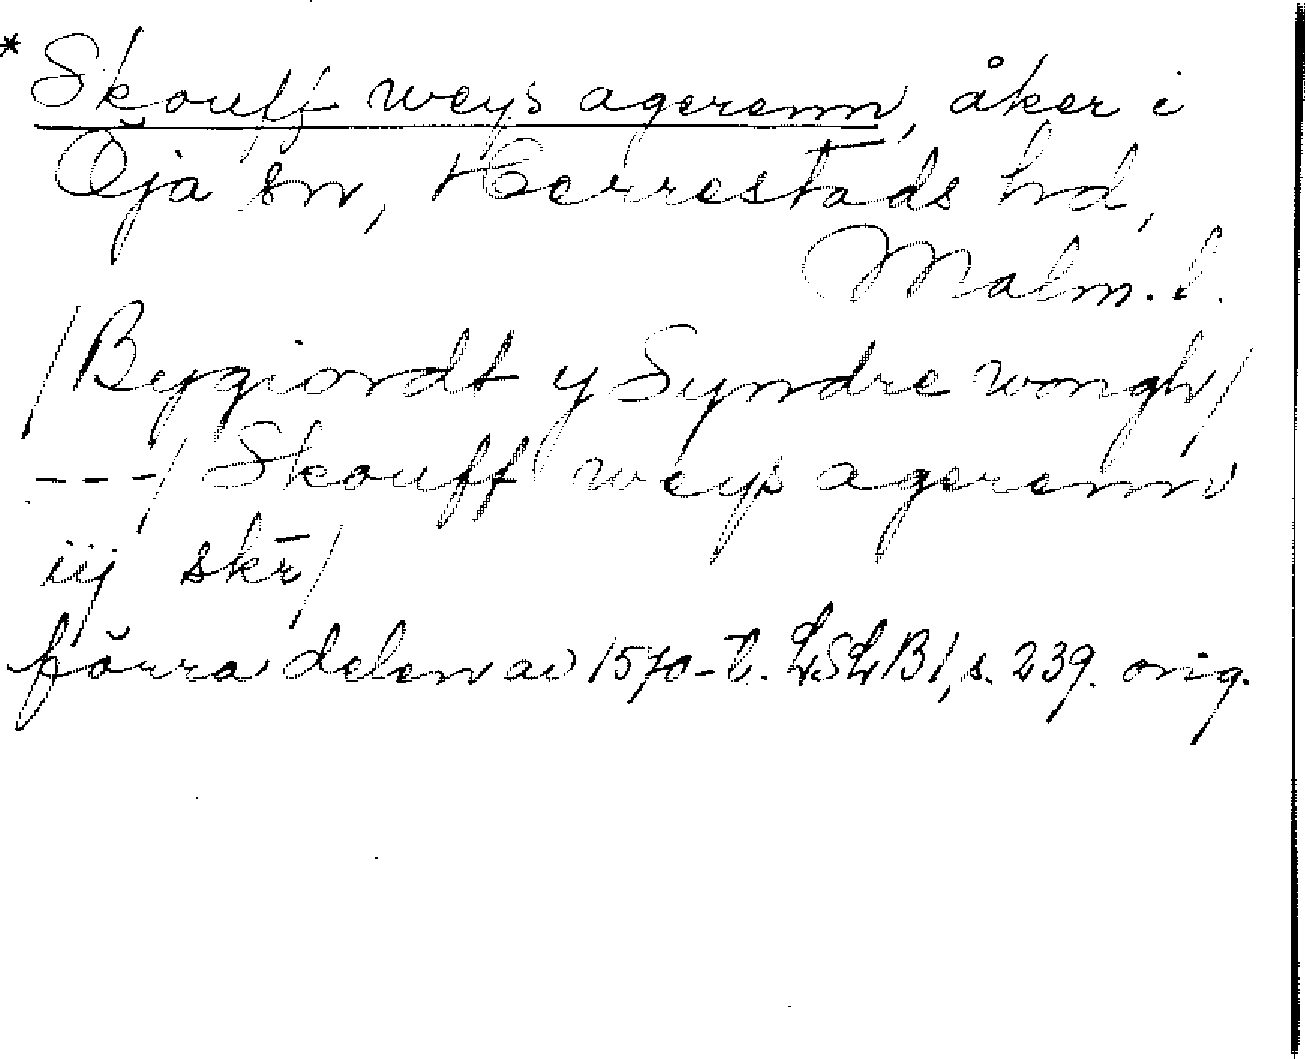 * Skouff weys agerenn, åker i
Öja sn, Herrestads hd,
Malm. l.
/Bygiordt y Syndre wongh/
---/ Skouff weys agerenn
iij skr̄/
förra delen av 1570-t. LSLB1, s. 239. orig.